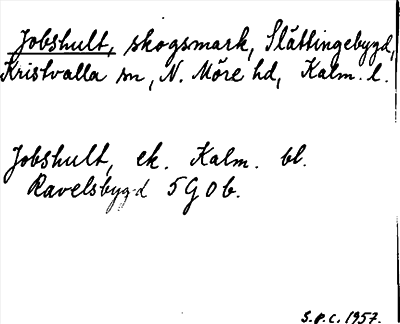 Jobshult, skogsmark, Slättingebygd,
Kristvalla sn, N. Möre hd, Kalm. l.
Jobshult, ek. Kalm. bl.
Ravelsbygd 5 G 0 b.
S.P.C. 1957.